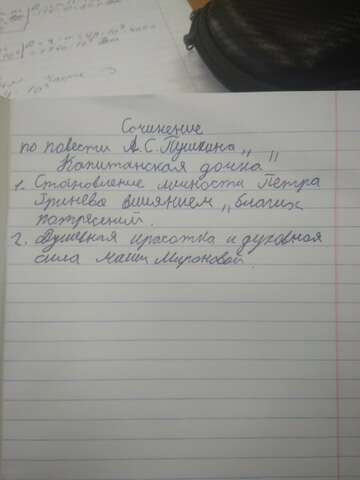 Сочинение
по повести А.С.Пушкина „ "
Капитанская дочка
1. Становление личности Петра
Гринёва влиянием „благих
потрясений.
2. Душевная красотка и духовная
сила маши Мироновой.